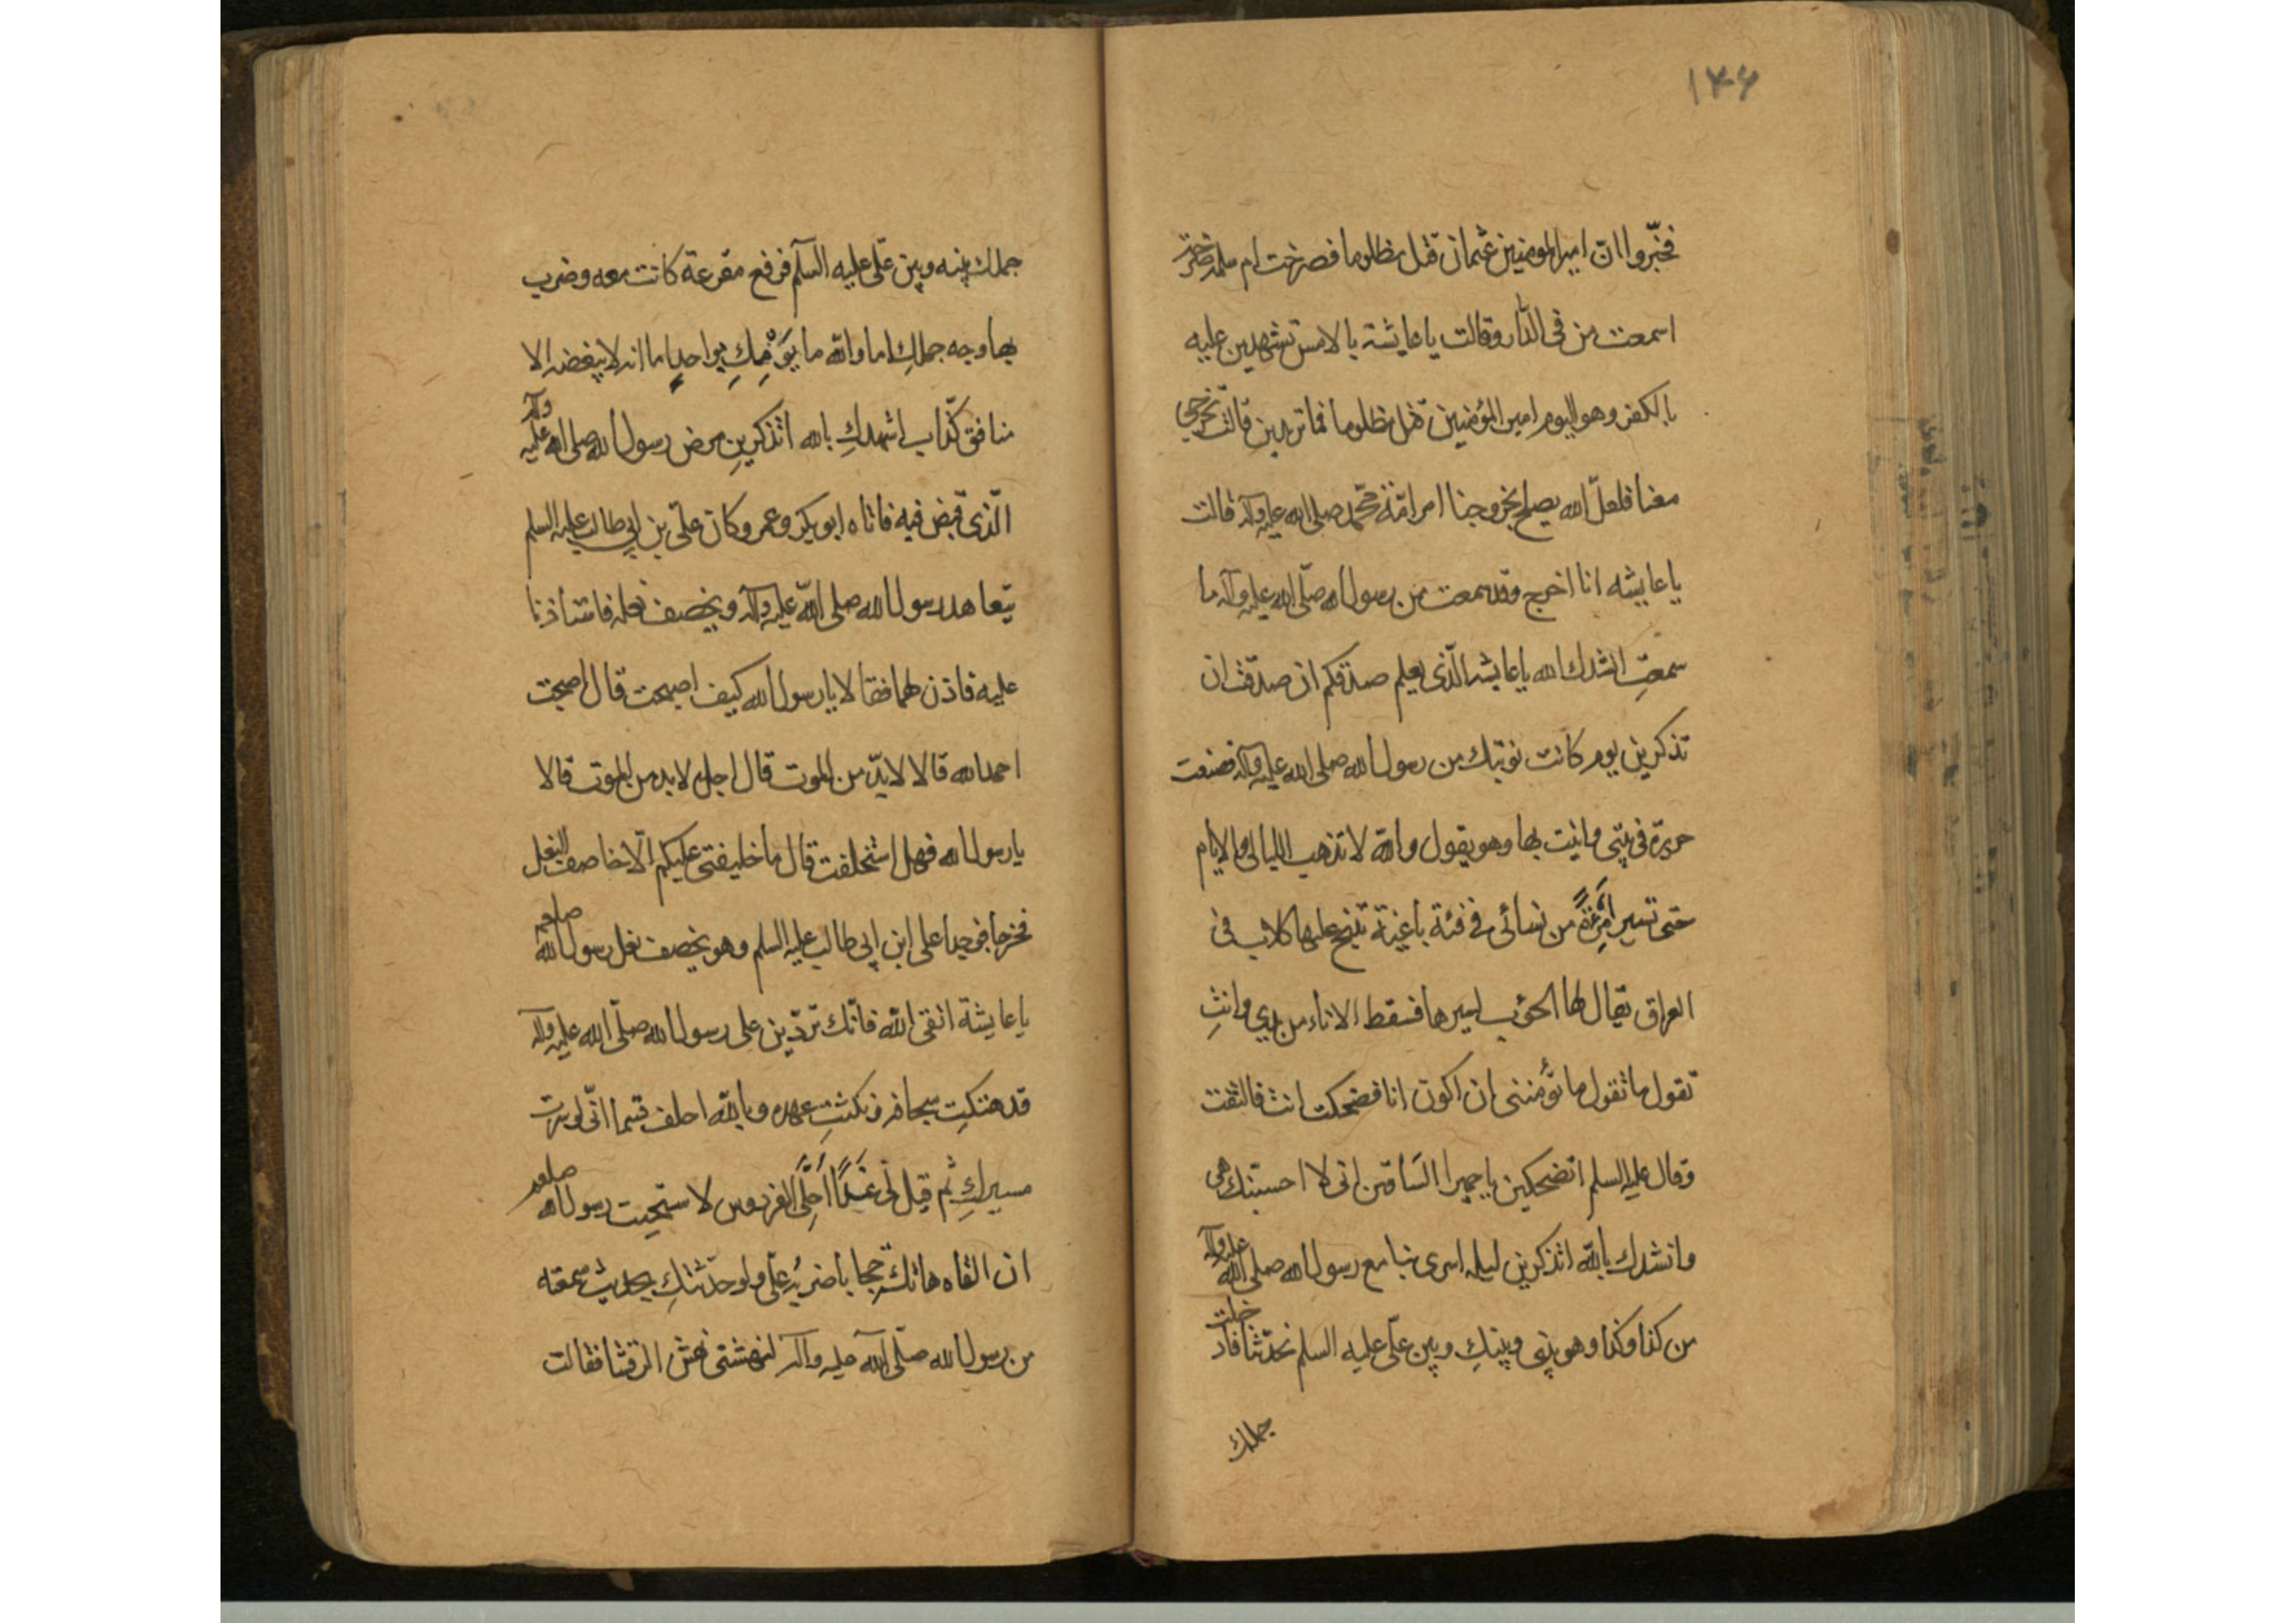 ۱۴۶
فخبّروا انّ امير المومنين عثمان قتل مظلوما فصرخت ام سلمه صرخة
اسمعت من فى الدّار وقالت يا عايشة بالامس تشهدين عليه
بالكفر وهو اليوم امير المؤمنين قتل مظلوما فما تريدين قالت تخرجى
معنا فلعلّ الله يصلح بخروجنا امر امّة محمّد صلى الله عليه وآله قالت
يا عايشه انا اخرج وقد سمعت من رسول الله صلّى الله عليه وآله ما
سمعتِ انشدك الله يا عايشه الّذى يعلم صدقكم ان صدّقت ان
تذكرين يوم كانت نوبتك من رسول الله صلى الله عليه وآله فصنعت
حريرة فى بيتى واتيت بها وهو يقول والله لا تذهب الليالى والايام
حتى تسير امرءة من نسائى فى فئة باغية تنبح عليها كلاب فى
العراق يقال لها الحوب لسيرها فسقط الاناء من يدى وانتِ
تقول ما تقول ما يؤمننى ان اكون انا فضحكت انت فالتفت
وقال عليه السلم اتضحكين يا حميرا السّاقين انى لا احسبنك هى
وانشدك بالله اتذكرين ليله اسرى بنا مع رسول الله صلى الله عليه وآله
من كذا وكذا وهو بينى وبينكِ وبين علّى عليه السلم نحدّثنا فادخلت
جملك
جملك بينه وبين علّى عليه السلّم فرفع مقرعة كانت معه وضرب
بها وجه جملكِ اما والله ما يَوْمِكِ بواحدٍ اما انه لا يبغضه الا
منافق كذّاب انشدكِ بالله اتذكرين مرض رسول الله صلى الله عليه وآله
الّذى قبض فيه فاتاه ابو بكر وعمر وكان علّى بن ابى طالب عليه السلم
يتعاهد رسول الله صلى الله عليه وآله ويخصف نعله فاستأذنا
عليه فاذن لهما فقالا يا رسول الله كيف اصبحت قال اصبحت
احمد الله قالا لا بدّ من الموت قال اجل لا بد من الموت قالا
يا رسول الله فهل استخلفت قال ما خليفتى عليكم الّا خاصف النعل
فخرجا فوجدا على ابن ابى طالب عليه السلم وهو يخصف نعل رسول الله صلعم
يا عايشة اتقى الله فانّك تردّين على رسول الله صلّى الله عليه وآله
قد هتكتِ سجافه ونكثتِ عهده وبالله احلف قسما انّى لو سرت
مسيركِ ثم قيل لى غَدًا اُحلّى الفردوس لاستحييت رسول الله صلعم
ان القاه هاتكة حجابا ضربُه علّى ولو حدّثتكِ بحديث سمعته
من رسول الله صلّى الله عليه وآله لنهشتى نهش الرقشا فقالت